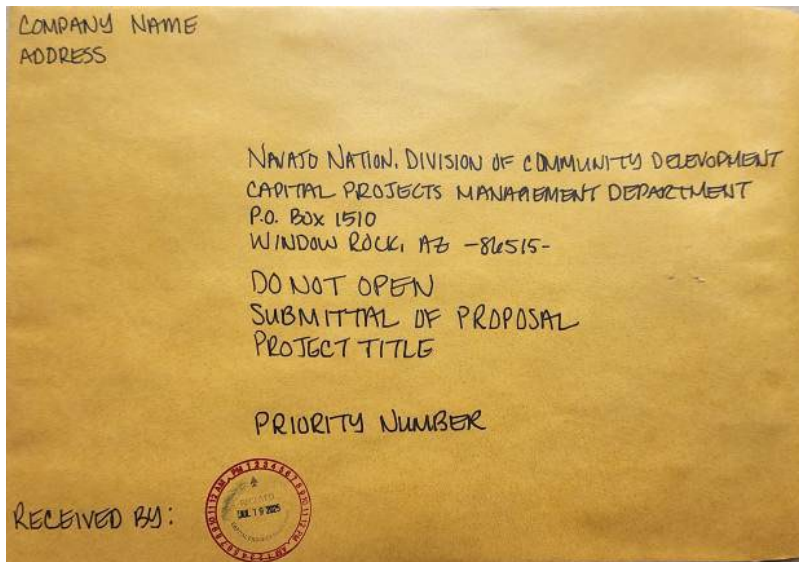 COMPANY NAME
ADDRESS
NAVAJO NATION, DIVISION OF COMMUNITY DELEVOPMENT
CAPITAL PROJECTS MANAGEMENT DEPARTMENT
P.O. BOX 1510
WINDOW ROCK, AZ -86515-
DO NOT OPEN
SUBMITTAL OF PROPOSAL
PROJECT TITLE
PRIORITY NUMBER
RECEIVED BY:
RECEIVED
JUL 19 2025